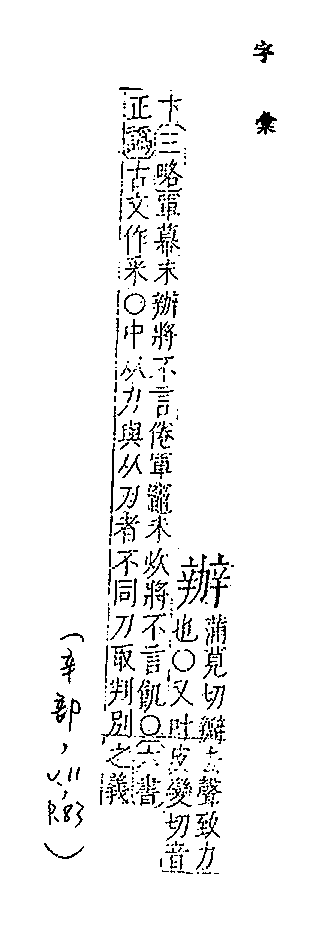 字彙
辦 蒲莧切瓣去聲致力
也○又吐皮變切音
卞三略軍幕未辦將不言倦軍竈未炊將不言飢○六書
正譌古文作釆○中从力與从刀者不同刀取判別之義
(辛部, V.11, P.83)